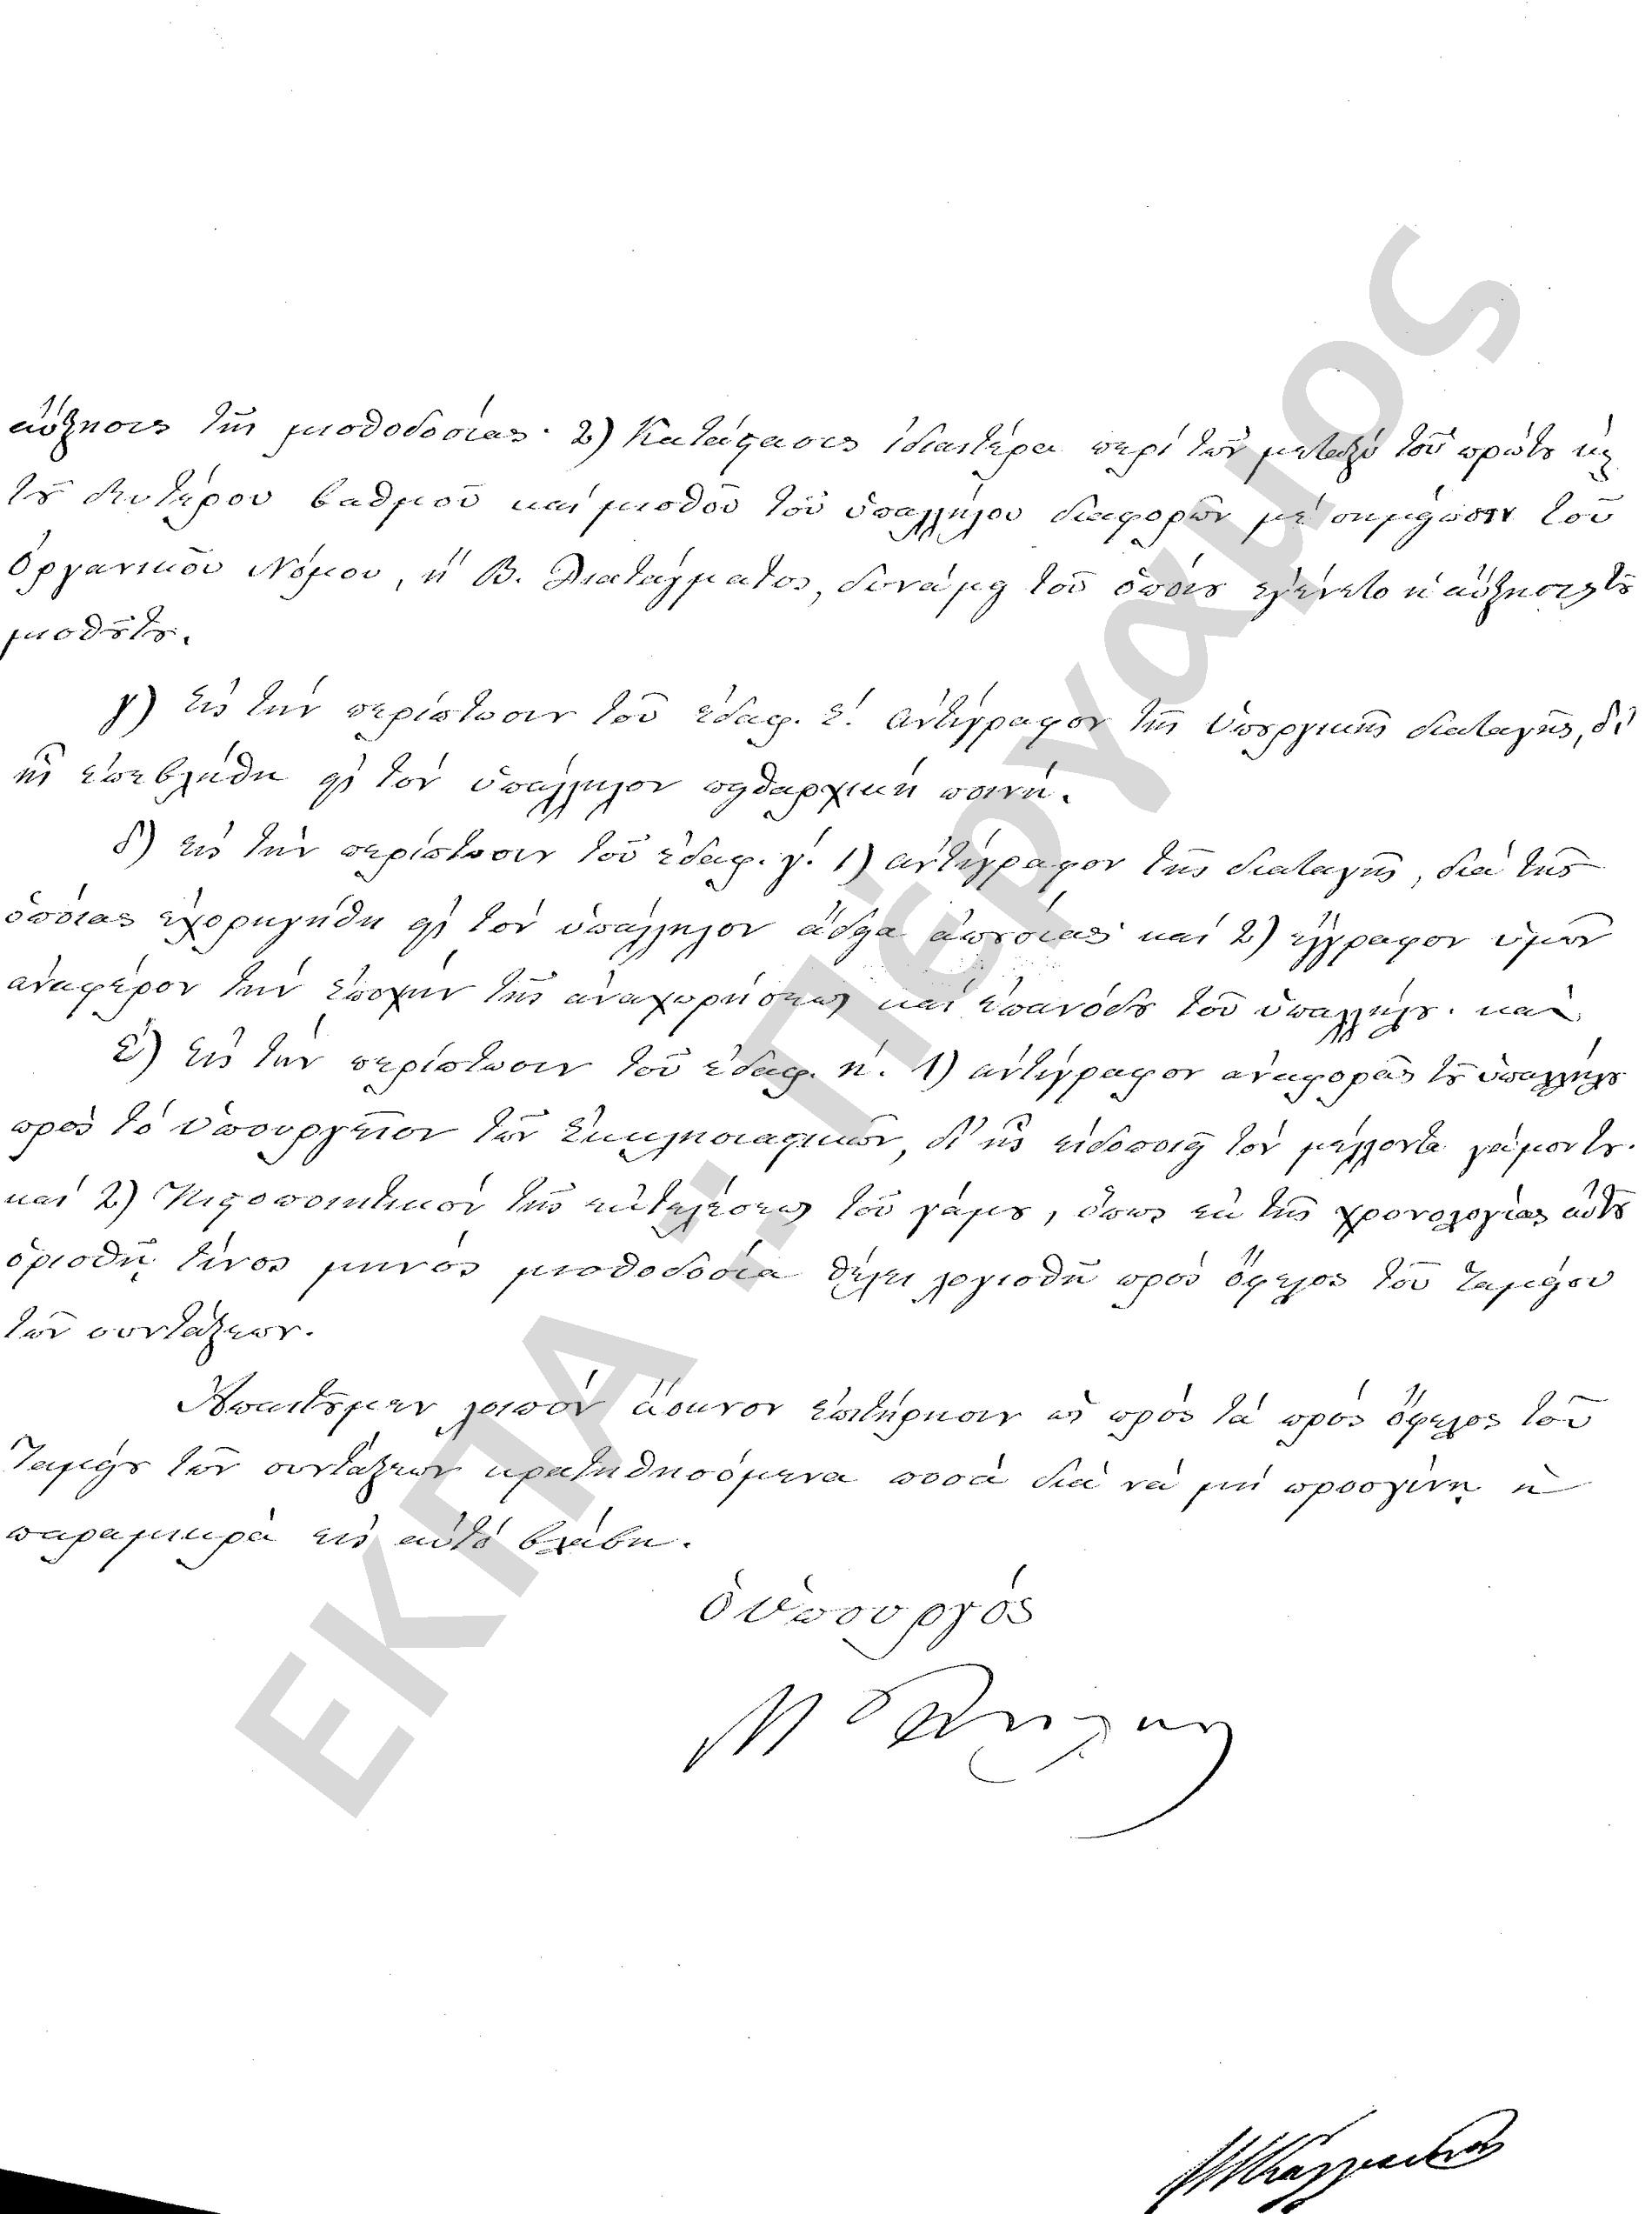 αὔξησις τῆς μισθοδοσίας· 2) Κατάστασις ἰδιαιτέρα περὶ τῶν μεταξὺ τοῦ πρώτȣ κ
τȣ͂ δευτέρου βαθμοῦ καὶ μισθοῦ τοῦ ὑπαλλήλου διαφορῶν μὲ σημείωσιν τοῦ
Ὀργανικοῦ Νόμου, ἢ Β. Διατάγματος, δυνάμει τοῦ ὁποίȣ ἐγένετο ἡ αὔξησις τȣ͂
μισθȣ͂ τȣ.
γ) Εἰς τὴν περίπτωσιν τοῦ ἐδαφ. ε΄. ἀντίγραφον τῆς Ὑπȣργικῆς διαταγῆς, δι᾽
ἧς ἐπεβλήθη εἰς τὸν ὑπάλληλον πειθαρχικὴ ποινή.
δ) εἰς τὴν περίπτωσιν τοῦ ἐδαφ. γ΄. 1) ἀντίγραφον τῆς διαταγῆς, διὰ τῆς
ὁποίας ἐχορηγήθη εἰς τὸν ὑπάλληλον ἄδεια ἀπȣσίας καὶ 2) ἔγγραφον ὑμῶν
ἀναφέρον τὴν ἐποχὴν τῆς ἀναχωρήσεως καὶ ἐπανόδȣ τοῦ ὑπαλλήλȣ· καὶ
ε) Εἰς τὴν περίπτωσιν τοῦ ἐδαφ. η΄. 1) ἀντίγραφον ἀναφορᾶς τȣ͂ ὑπαλλήλȣ
πρὸς τὸ Ὑπουργεῖον τῶν Ἐκκλησιαστικῶν, δι᾽ ἧς εἰδοποιεῖ τὸν μέλλοντα γάμον τȣ·
καὶ 2) Πιστοποιητικὸν τῆς ἐκτελέσεως τοῦ γάμȣ, ὅπως ἐκ τῆς χρονολογίας αὐτȣ͂
ὁρισθῇ τίνος μηνὸς μισθοδοσία θέλει λογισθῆ πρὸς ὄφελος τοῦ Ταμείου
τῶν συντάξεων.
Ἀπαιτȣ͂μεν λοιπὸν ἄοκνον ἐπιτήρησιν ὡς πρὸς τὰ πρὸς ὄφελος τοῦ
Ταμείȣ τῶν συντάξεων κρατηθησόμενα ποσὰ διὰ νὰ μὴ προσγίνῃ ἡ
παραμικρὰ εἰς αὐτὸ βλάβη.
ὁ Ὑπουργός
ΕΚΠΑ ... Πέργαμος